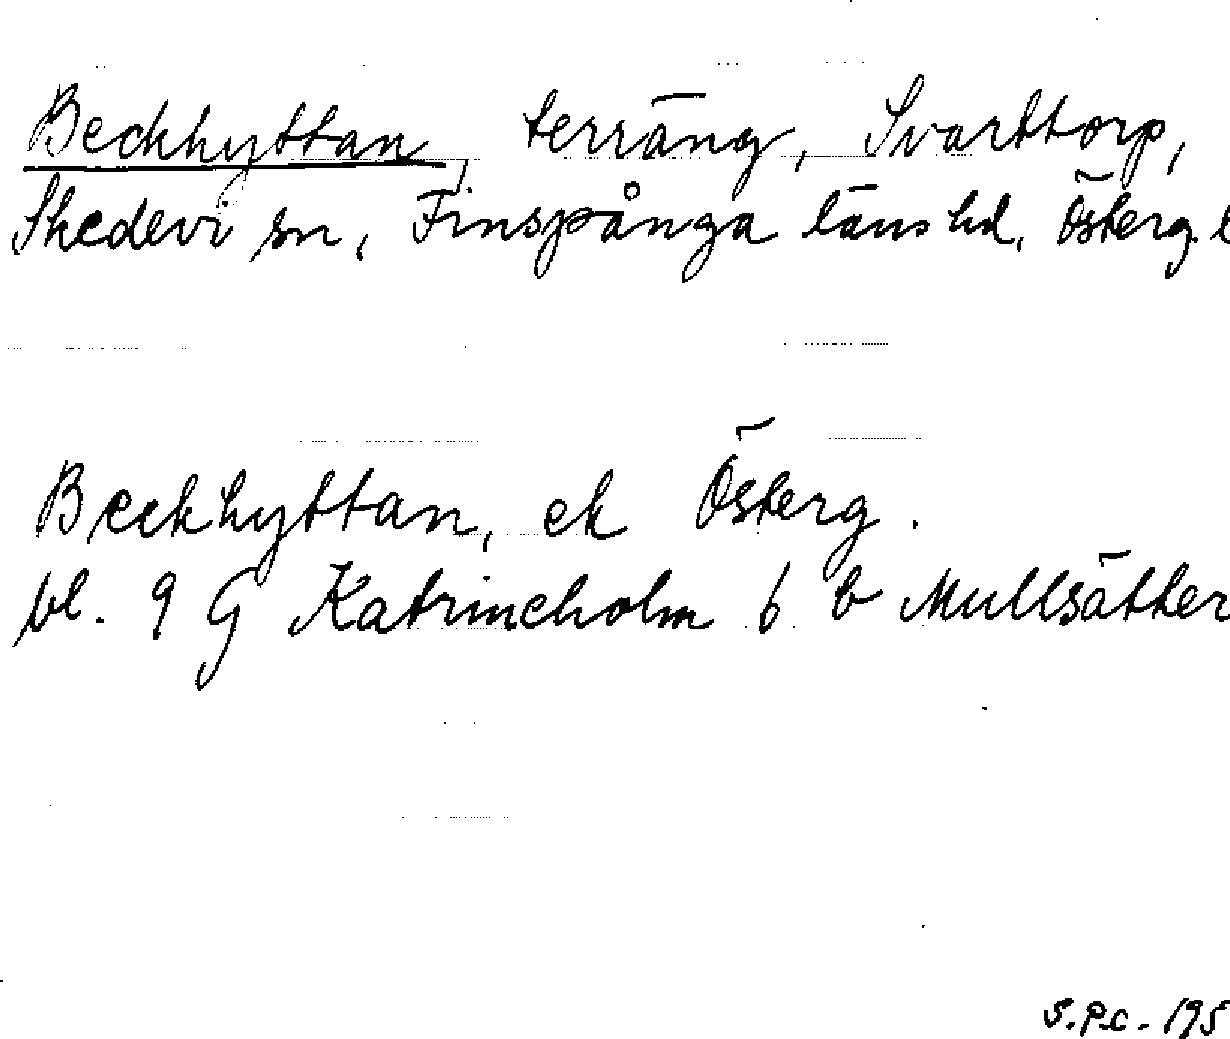 Beckhyttan, terräng, Svarttorp,
Skedevi sn, Finspånga läns hd, Österg. l
Beckhyttan, ek Österg.
bl. 9 G Katrineholm 6 b Mullsätter
S.P.C. 195